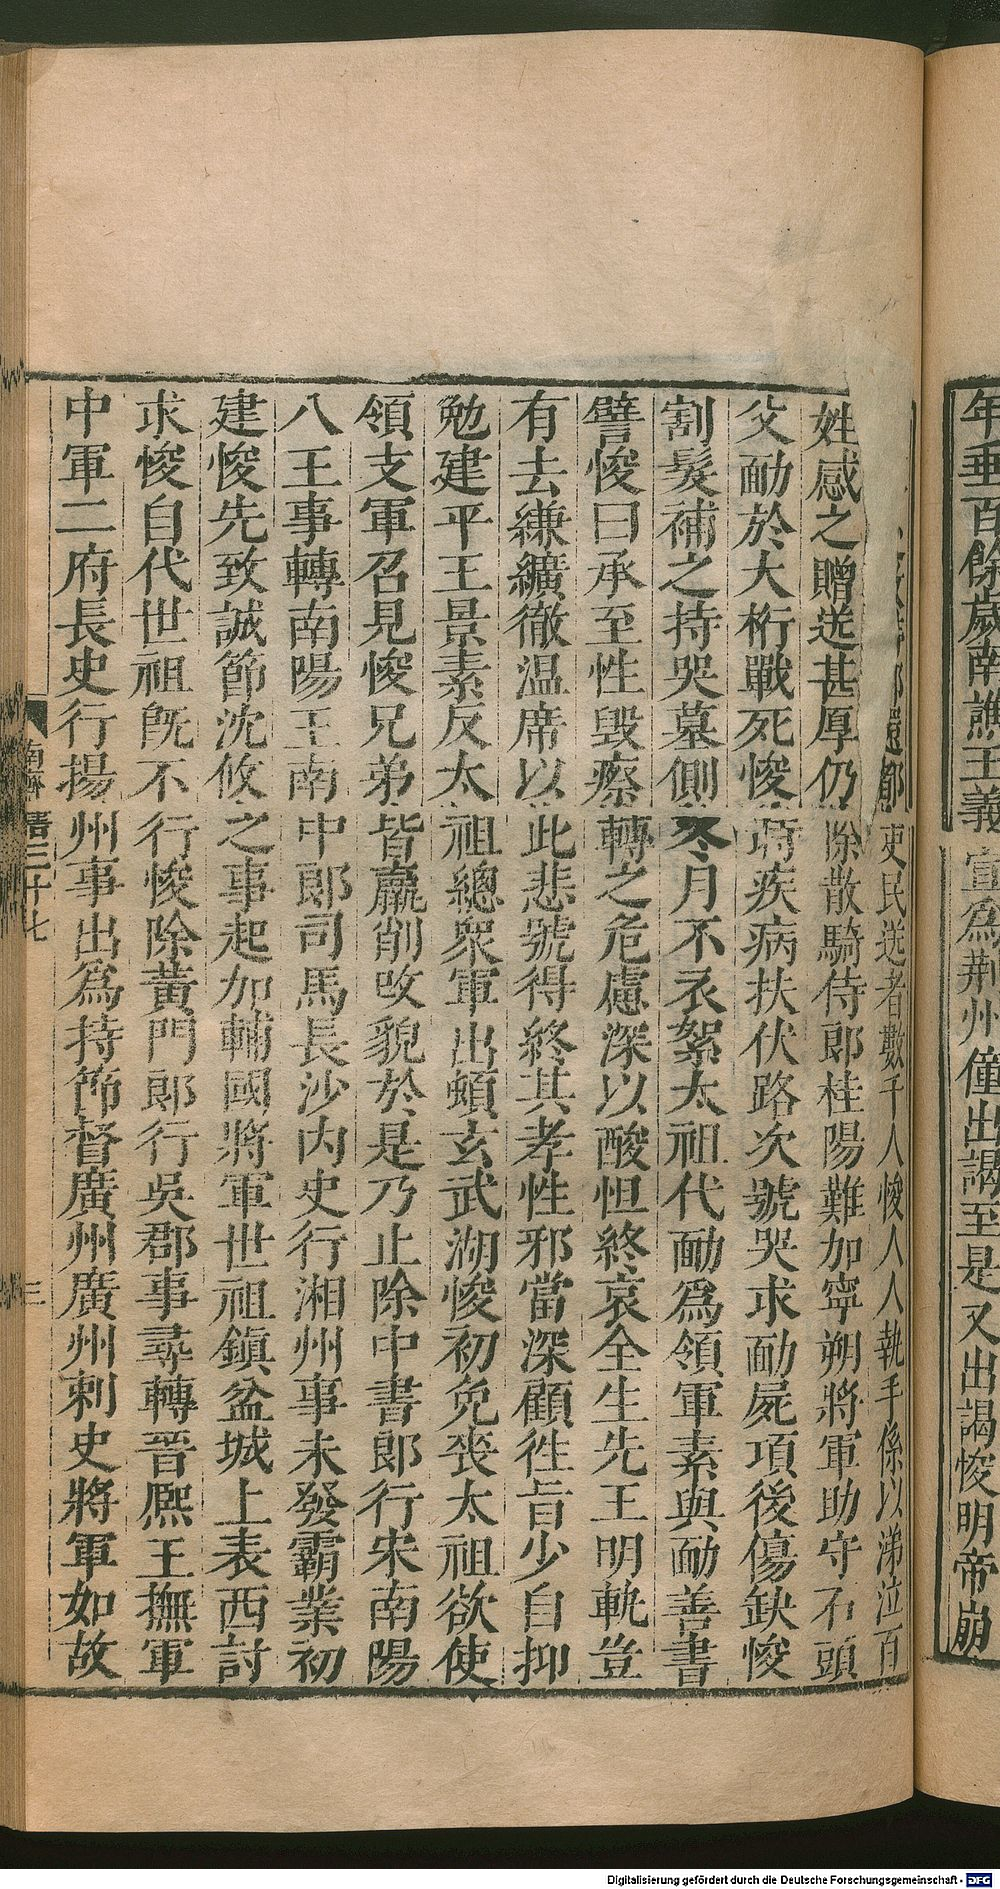 年垂百餘歲南譙王義宣爲荆州僮出謁至是又出謁悛明帝崩
還都吏民送者數千人悛人人執手係以涕泣百
姓感之贈送甚厚仍除散騎侍郎桂陽難加寧朔將軍助守石頭
父勔於大桁戰死悛時疾病扶伏路次號哭求勔屍項後傷缺悛
割髮補之持哭墓側冬月不衣絮太祖代勔爲領軍素與勔善書
譬悛曰承至性毀瘵轉之危慮深以酸怛終哀全生先王明軌豈
有去縑纊徹溫席以此悲號得終其孝性邪當深顧往旨少自抑
勉建平王景素反太祖總衆軍出頓玄武湖悛初免喪太祖欲使
領支軍召見悛兄弟皆羸削改貌於是乃止除中書郎行宋南陽
八王事轉南陽王南中郎司馬長沙内史行湘州事未發霸業初
建悛先致誠節沈攸之事起加輔國將軍世祖鎮盆城上表西討
求悛自代世祖旣不行悛除黃門郎行吳郡事尋轉晉熈王撫軍
中軍二府長史行揚州事出爲持節督廣州廣州刺史將軍如故
南齊書三十七
三
Digitalisierung gefördert durch die Deutsche Forschungsgemeinschaft - DFG